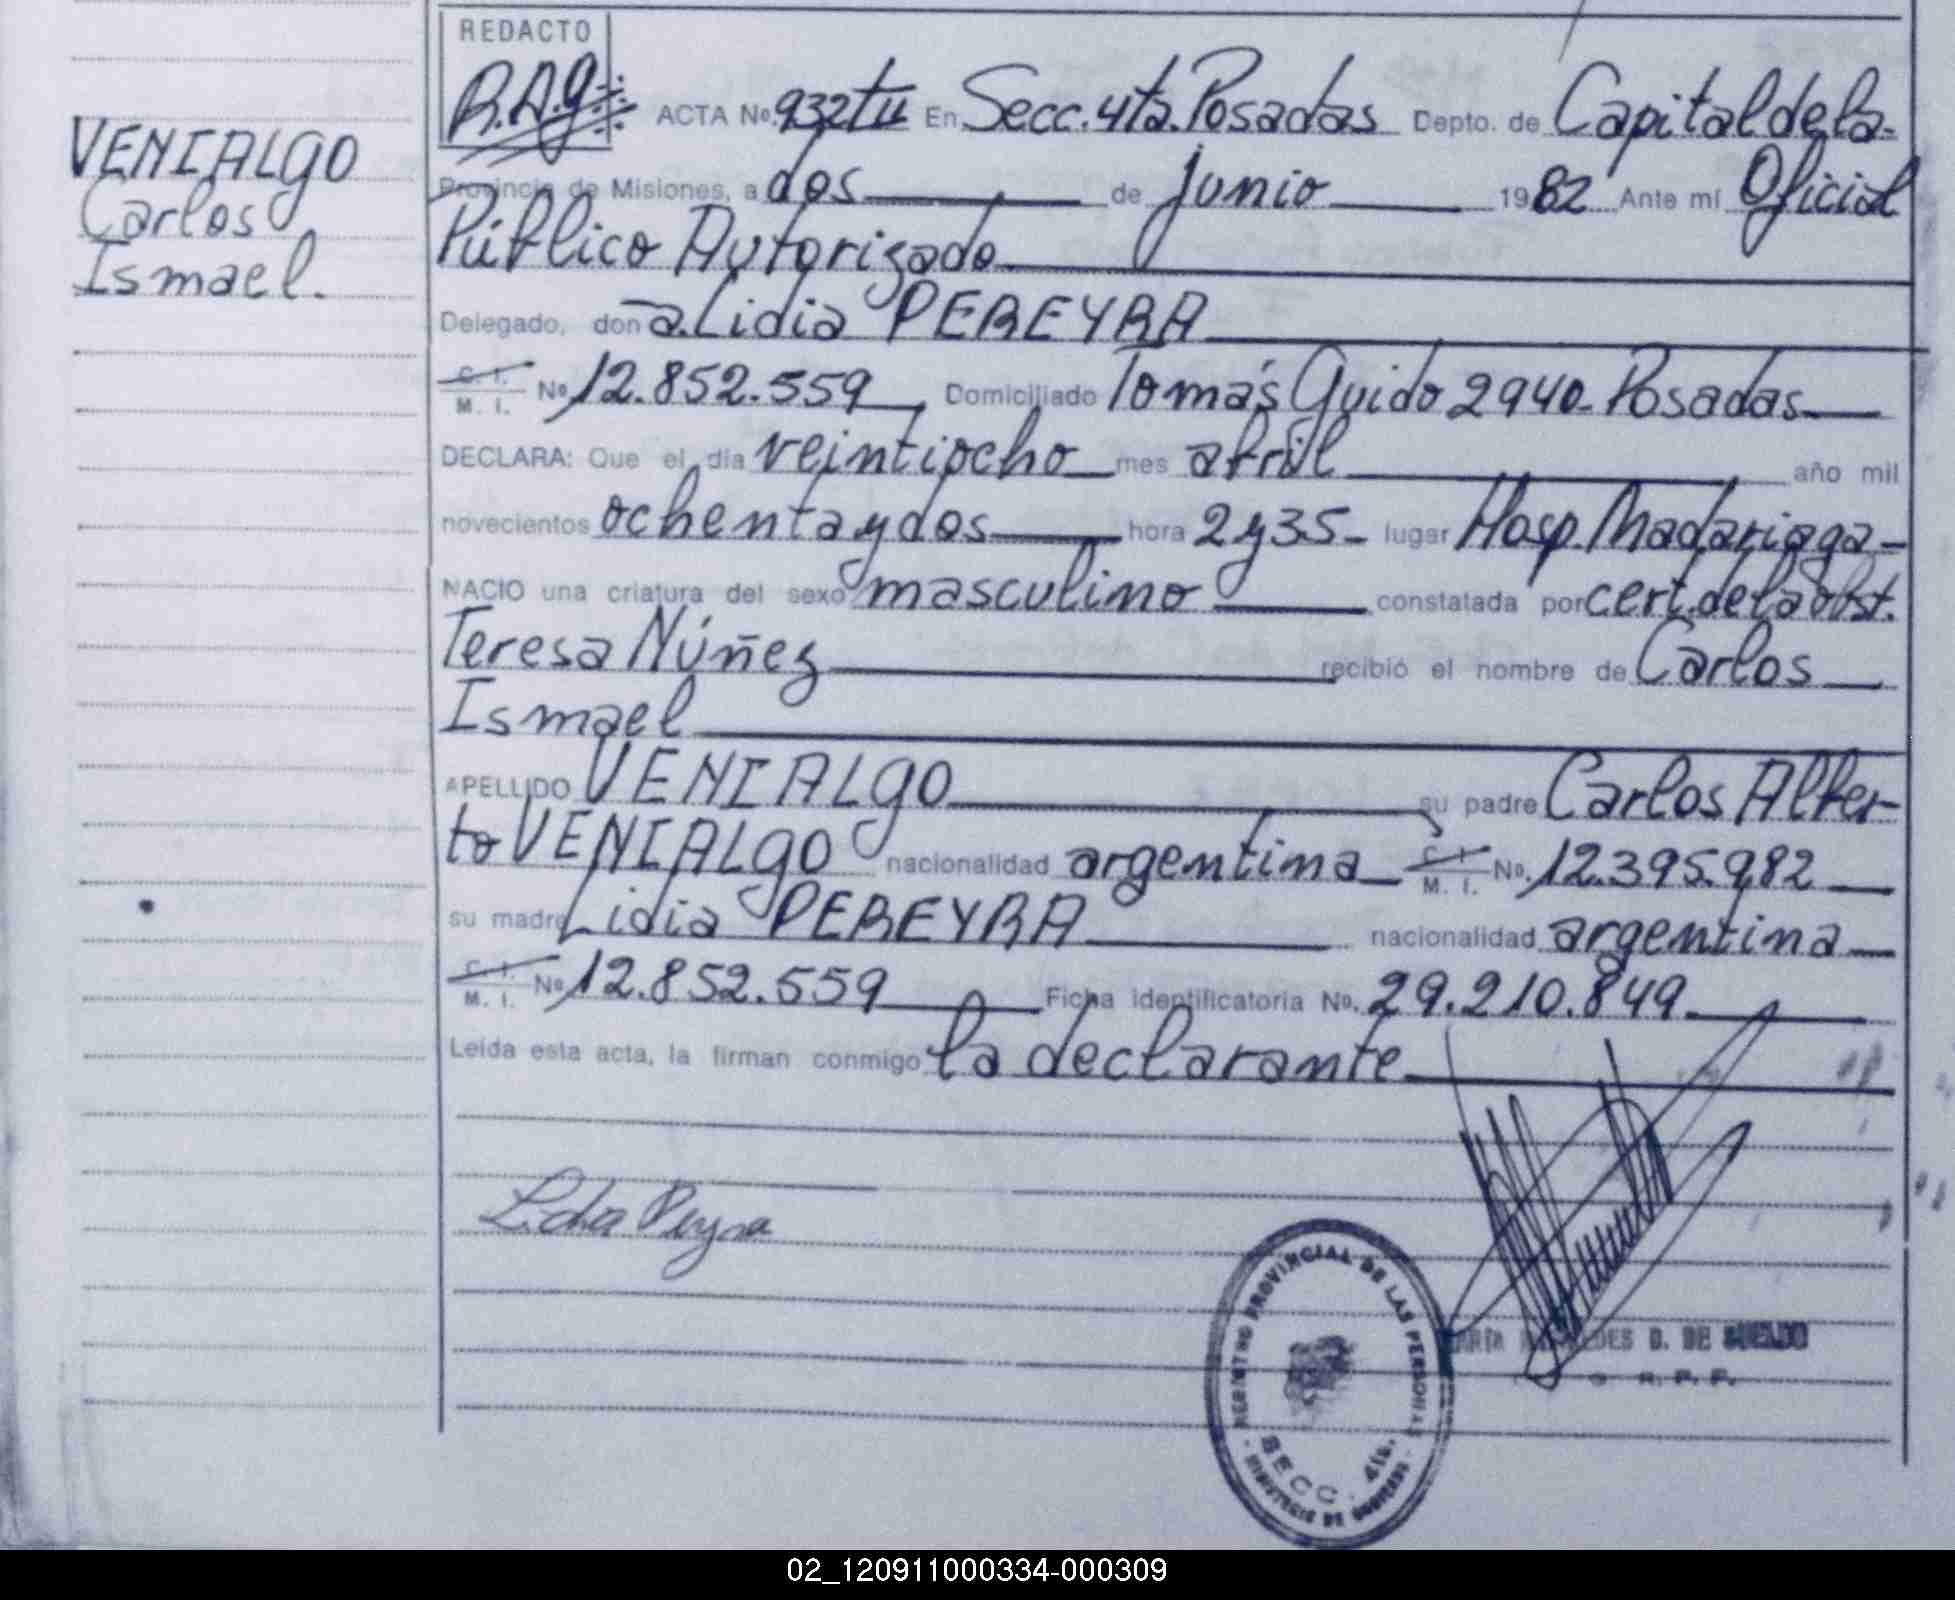 REDACTO
R.A.g.
ACTA No. 932 tu En Secc. 4ta. Posadas Depto. de Capital de la-
VENIALGO
Carlos
Ismael.
Provincia de Misiones, a dos de Junio 1982 Ante mí Oficial
Público Autorizado
Delegado, don a. Lidia PEREYRA
C. I. M. I. No 12.852.559 Domiciliado Tomás Guido 2940- Posadas
DECLARA: Que el día veintiocho mes abril año mil
novecientos ochenta y dos hora 2 y 35 - lugar Hosp. Madariaga -
NACIO una criatura del sexo masculino constatada por cert. de la obst.
Teresa Núñez recibió el nombre de Carlos
Ismael
APELLIDO VENIALGO su padre Carlos Alber-
to VENIALGO nacionalidad argentina C. I. M. I. No. 12.395.982
su madre Lidia PEREYRA nacionalidad argentina
C. I. M. I. No 12.852.559 Ficha identificatoria No. 29.210.849
Leída esta acta, la firman conmigo la declarante
Lidia Pereyra
REGISTRO PROVINCIAL DE LAS PERSONAS
SECC. 4ta.
MINISTERIO DE GOBIERNO
D. DE SUELDO
02_120911000334-000309